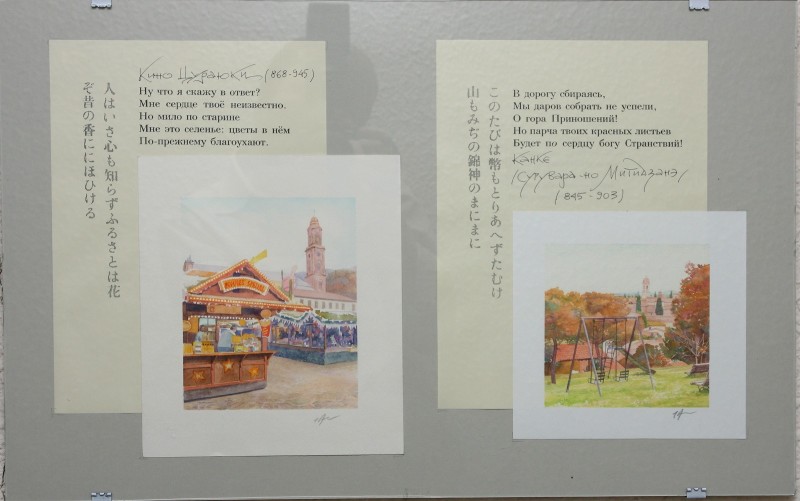 Кино Цураюки (868-945)
Ну что я скажу в ответ?
Мне сердце твоё неизвестно.
Но мило по старине
Мне это селенье: цветы в нём
По-прежнему благоухают.
人はいさ心も知らずふるさとは花
ぞ昔の香ににほひける
В дорогу сбираясь,
Мы даров собрать не успели,
О гора Приношений!
Но парча твоих красных листьев
Будет по сердцу богу Странствий!
Канке
Сугавара-но Митидзанэ
(845-903)
このたびは幣もとりあへずたむけ
山もみぢの錦神のまにまに